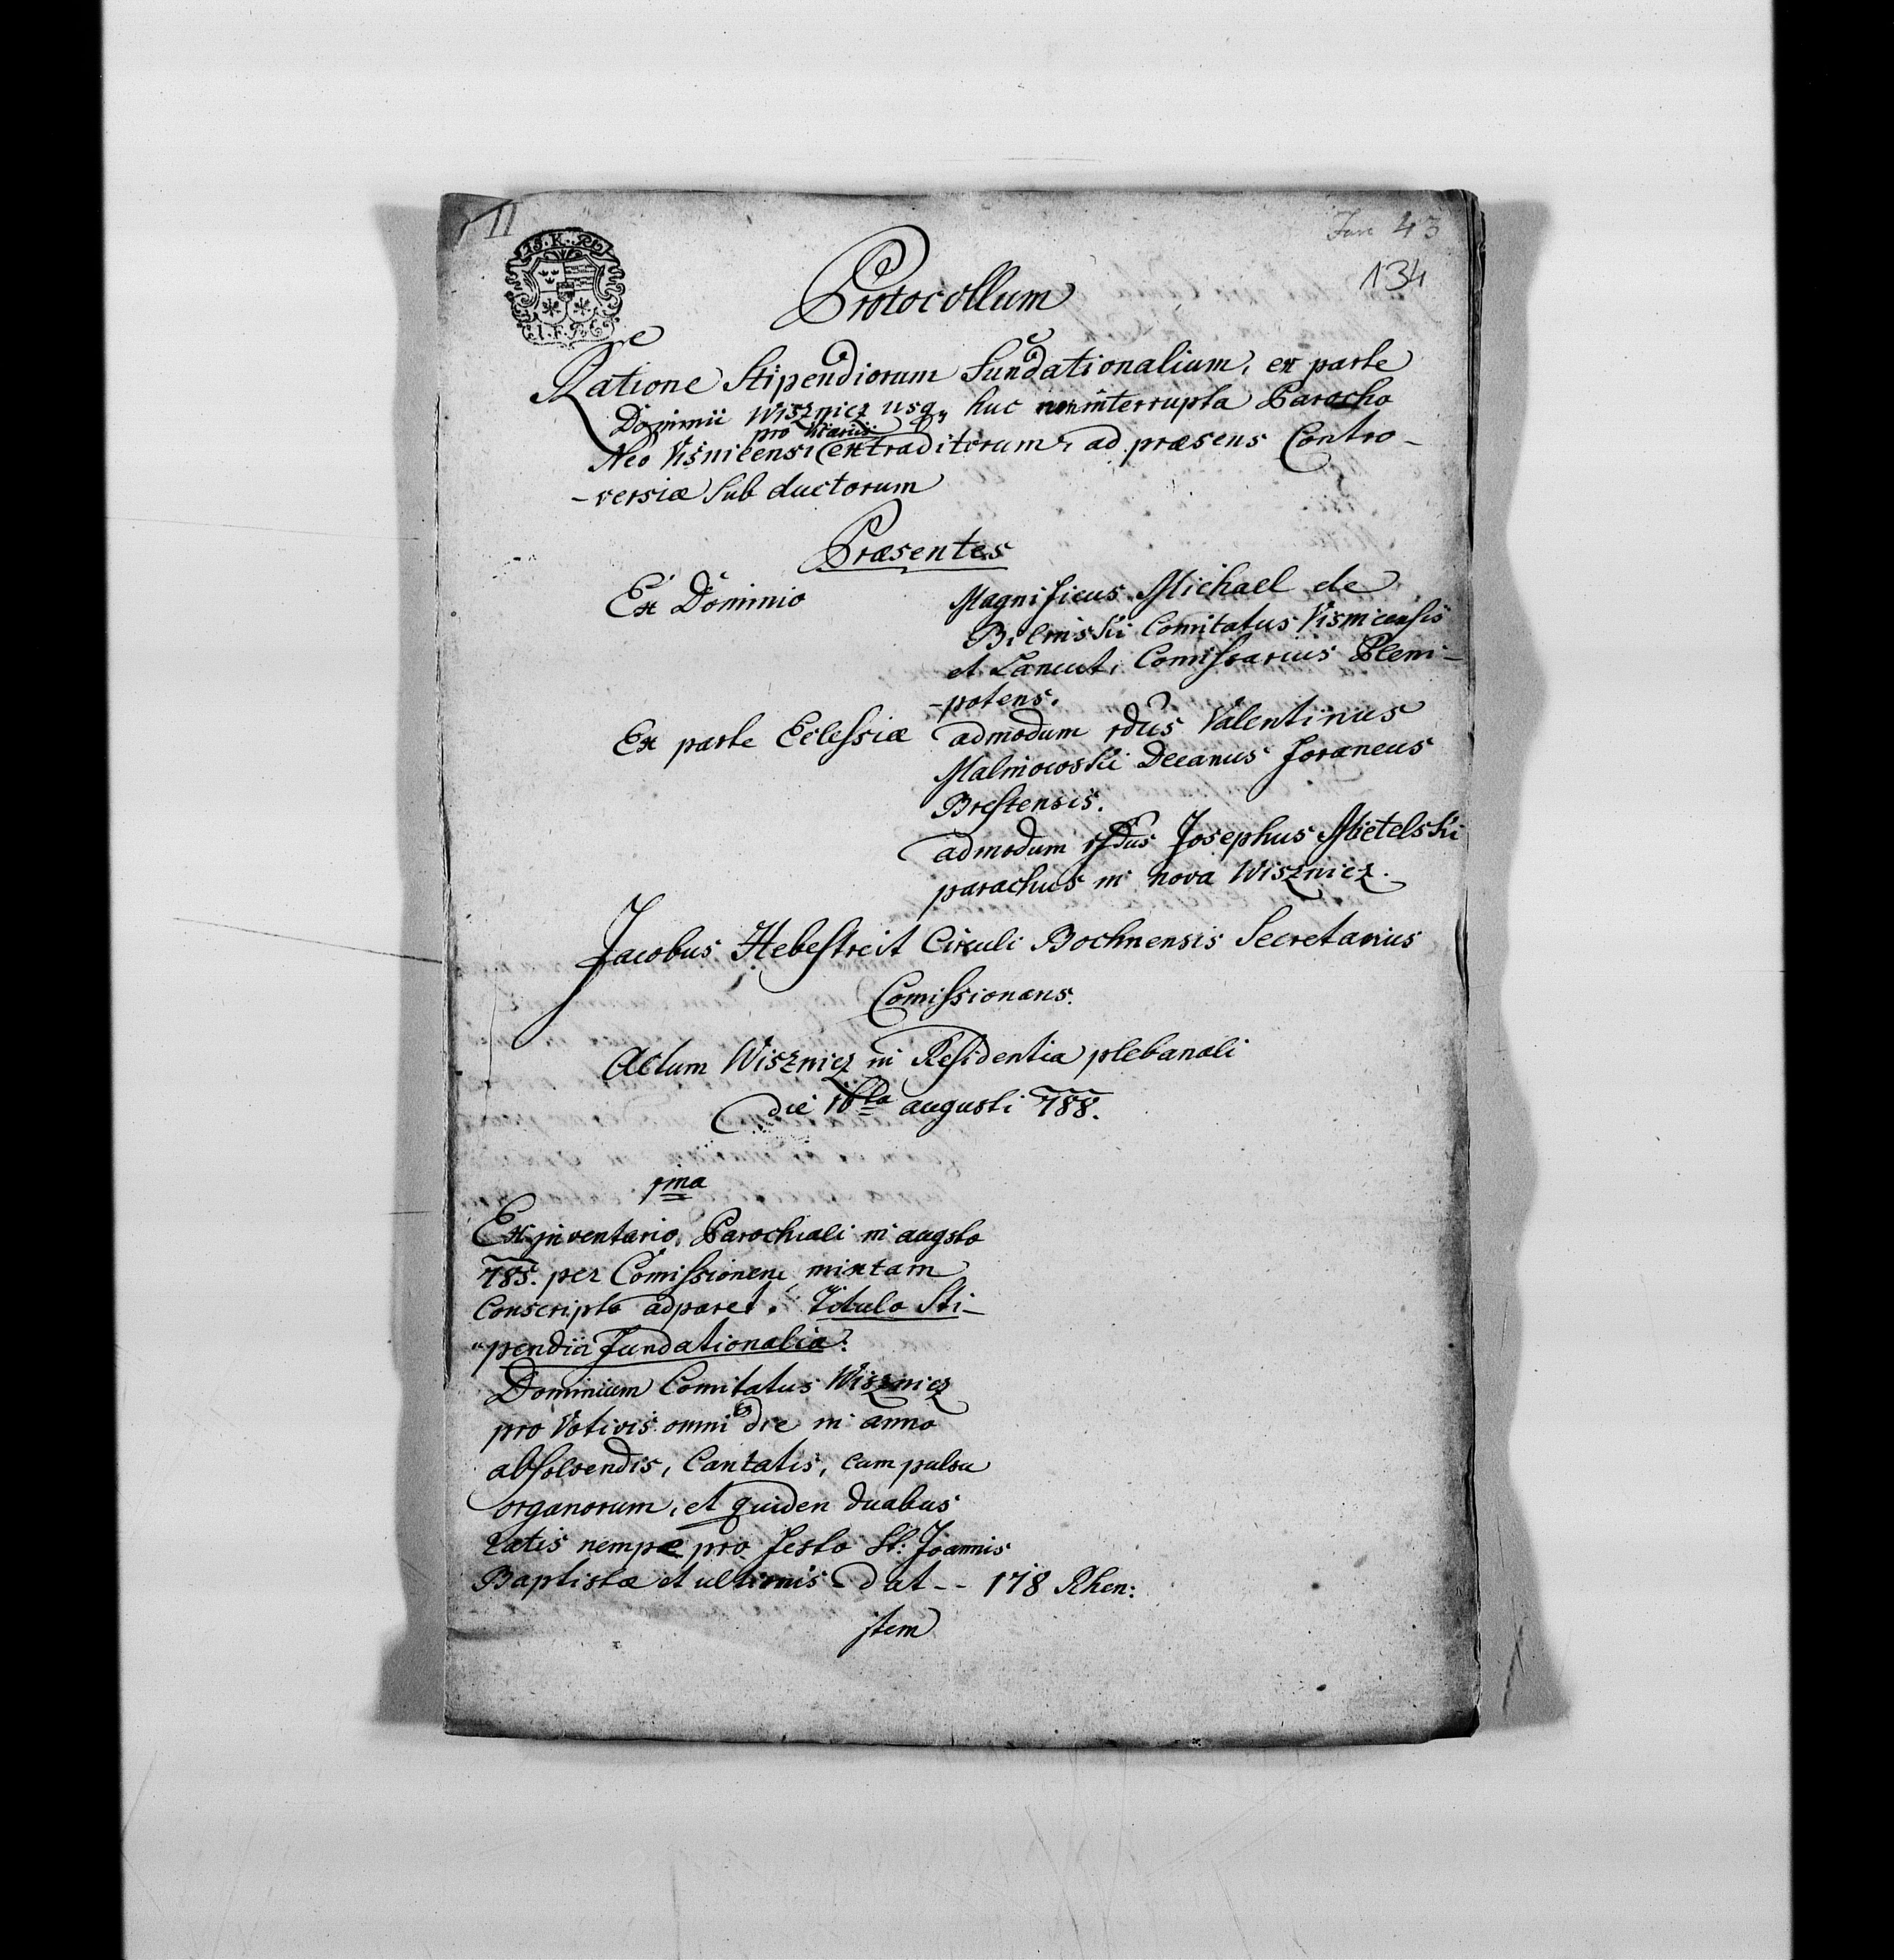 11
Fasc 43
134
Protocollum
Ratione Stipendiorum Fundationalium, ex parte
Dominii Wisznicz usq, huc nonninterrupta Parocho
pro Vicariis
Neo Visnicensi extraditorum, ad præsens Contro-
-versiæ Sub ductorum
Præsentes
Ex Dominio
Magnificus Michael de
Bilinski Comitatus Visnicensis
et Læncut, Comissarius Pleni-
-potens.
Ex parte Eclessiæ
admodum rdus Valentinus
Malinowski Decanus foraneus
Brestensis.
admodum rdus Josephus Mietelski
parachus in nova Wisznicz.
Jacobus Hebestreit Circuli Bochnensis Secretarius
Comissionans.
Actum Wisznicz in Residentia plebanali
die 16ta augusti 788.
1ma
Ex inventario Parochiali in augsto
785. per Comissionem mixtam
Conscripto adparet. Titulo Sti-
pendia fundationalia:
Dominium Comitatus Wisznicz
pro Votivis omni die in anno
absolvendis, Cantatis, cum pulsu
organorum, et quidem duabus
ratis nempe pro festo St: Joannis
Baptistæ et ultimis dat -- 178 Rhen:
item